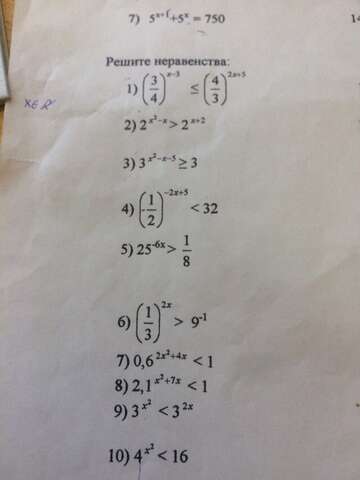 7) 5^{x+1}+5^x = 750
14
Решите неравенства:
x∈R
1) (3/4)^{x-3} ≤ (4/3)^{2x+5}
2) 2^{x²-x} > 2^{x+2}
3) 3^{x²-x-5} ≥ 3
4) (-1/2)^{-2x+5} < 32
5) 25^{-6x} > 1/8
6) (1/3)^{2x} > 9^{-1}
7) 0,6^{2x²+4x} < 1
8) 2,1^{x²+7x} < 1
9) 3^{x²} < 3^{2x}
10) 4^{x²} < 16